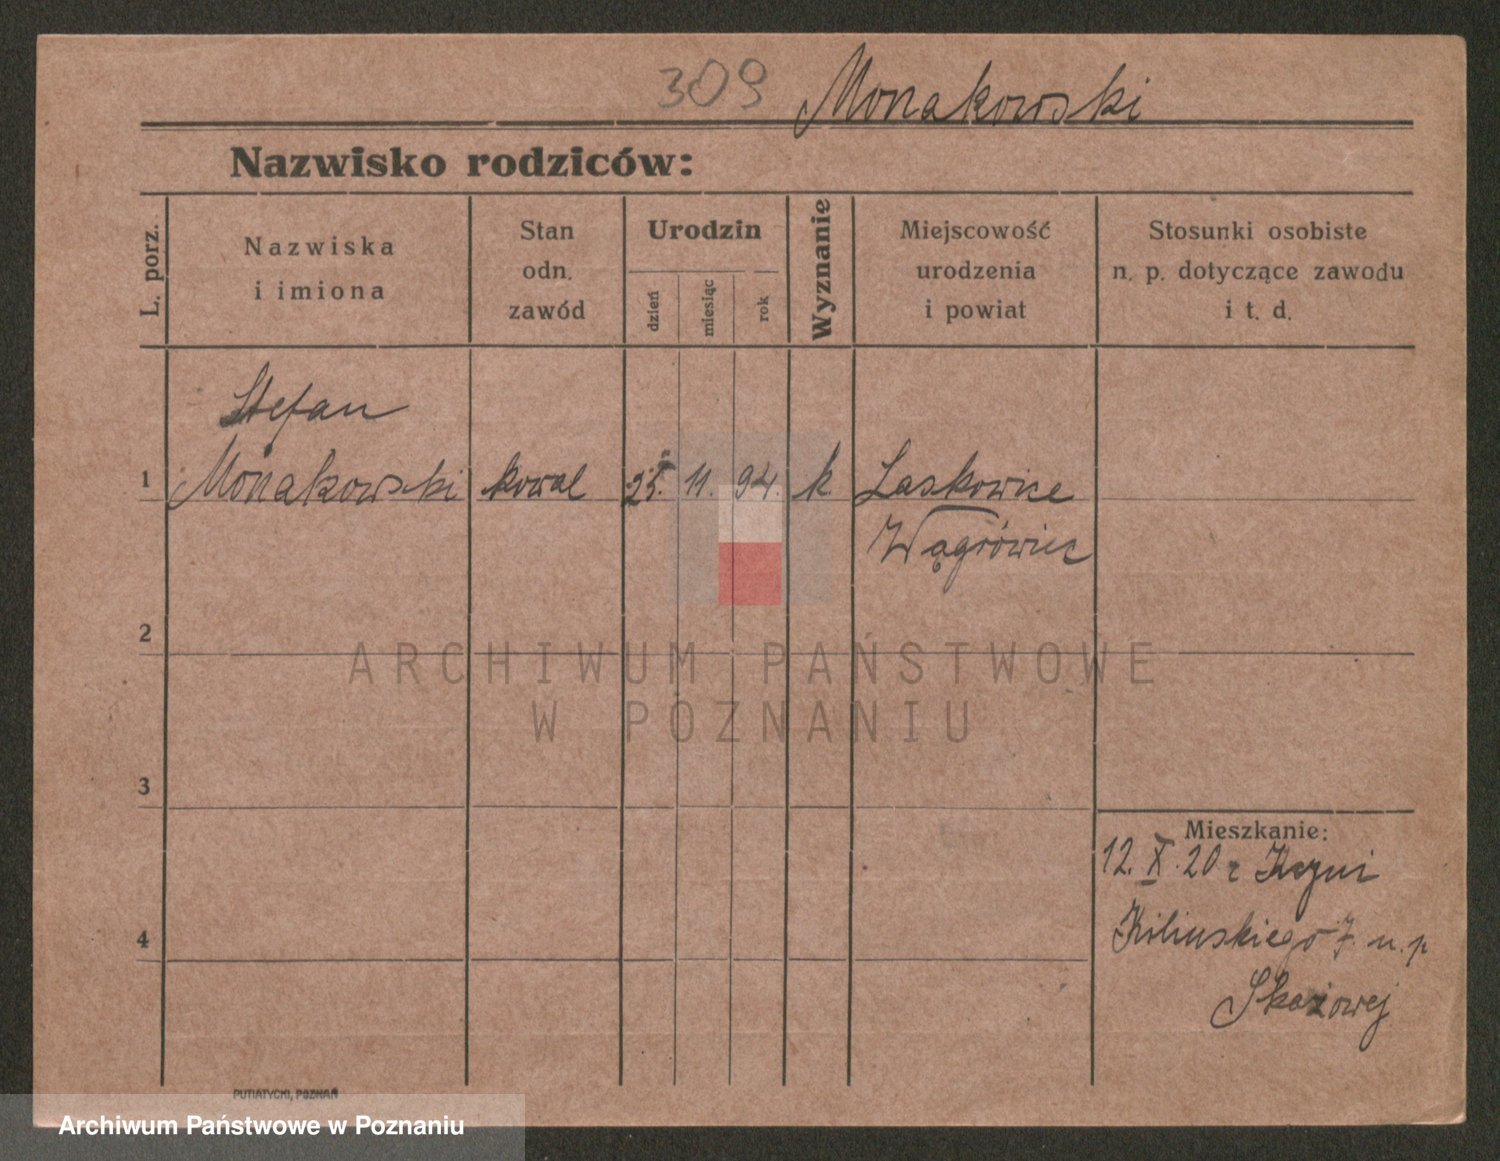 309 Monakowski
Nazwisko rodziców:
L. porz.
Nazwiska
i imiona
Stan
odn.
zawód
Urodzin
dzień
miesiąc
rok
Wyznanie
Miejscowość
urodzenia
i powiat
Stosunki osobiste
n. p. dotyczące zawodu
i t. d.
Stefan
1 Monakowski kowal 25. 11. 94. k. Laskowice
Wągrówiec
2
ARCHIWUM PAŃSTWOWE
W POZNANIU
3
Mieszkanie:
12. X. 20 z
4 Kilinskiego 7. u. p
Skazowej
PUTIATYCKI, POZNAŃ
Archiwum Państwowe w Poznaniu